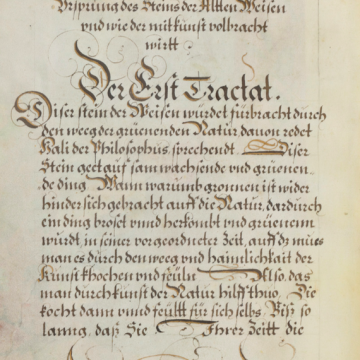 Ursprung des Steins der Altten Weisen
vnd wie der mit kunst volbracht
wirtt.
Der Erst Tractat.
Diser stein der Weisen würdet fürbracht durch
den weeg der grüenenden Natur dauon redet
Hali der Philosophus, sprechendt. Diser
Stein geet auf jnn wachsende vnd grüenen
de ding Wann warumb gronnen ist wider
hindersich gebracht auff die Natur, dardurch
ein ding broset vnnd herkombt vnd grüenenn
würdt, in seiner vorgeordneter Zeit, auff dz mües
man es durch den weeg vnd haimlichait der
Kunst khochen vnd feülu Also, das
man durch kunst der Natur hilff thuo, Die
kocht dann vnnd feültt für sich selbs Biß so
lanng, daß Sie Ihrer Zeitt die